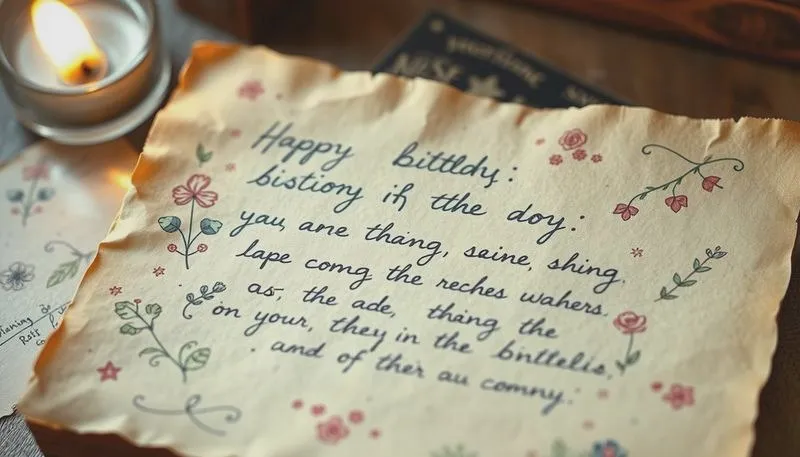 Happy bittldy:
bistiony if the doy:
yau, ane thang, seine, shing.
lape comg the reches wahers.
as, the ade, thing the
on your, they in the bnittelis,
. and of their au comny.